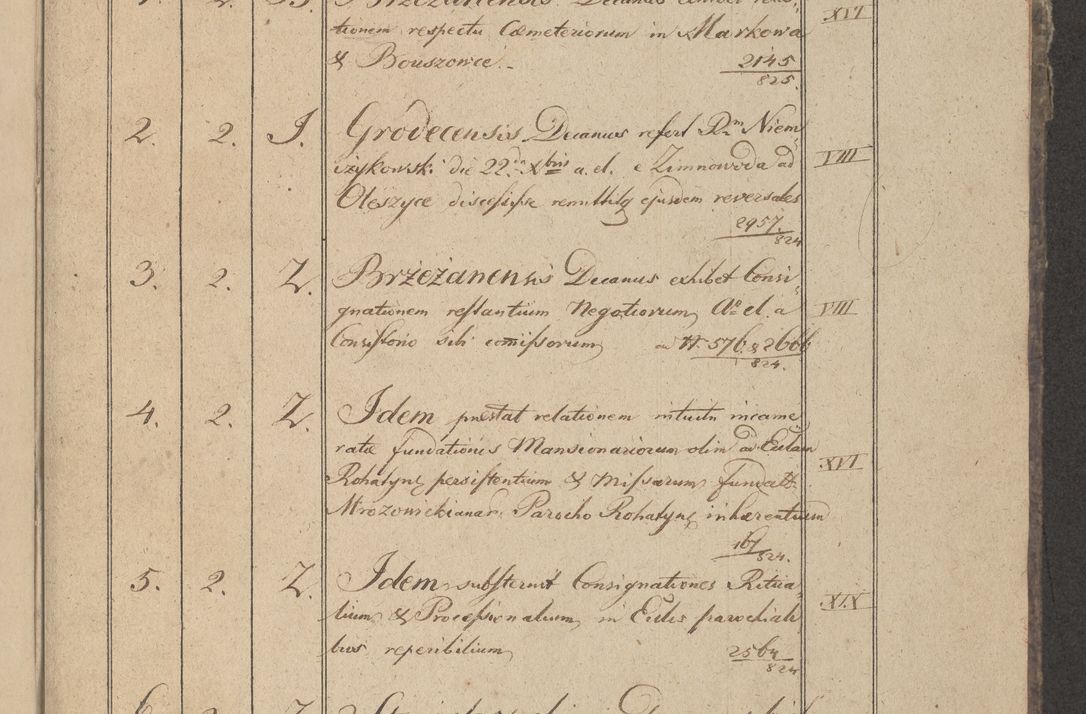 1. 2. Brzeżanensis Decanus
tionem respectu Cœmeteriorum in Markowa XVI
& Bouszowce.- 2145
825.
2. 2. I. Grodecensis Decanus refert Rm Niem-
czykowski die 22da Xbris a. el. e Zimnowoda ad VIII
Oleszyce discessisse remittitq ejusdem reversales
2957.
824
3. 2. Z. Brzeżanensis Decanus exhibet Consi-
gnationem restantium Negotiorum Ao el. a VIII
Consistorio sibi comissorum ad N 576. & 2666
824.
4. 2. Z. Idem præstat relationem intuitu incame
ratæ fundationis Mansionariorum olim ad Ecclam
Rohatyn persistentium & Missarum fundatt. XVI
Mrozowickianar. Parocho Rohatyn inhærentium
167
824.
5. 2. Z. Idem substernit Consignationes Ritua-
lium & Processionalium in Eccliis parochiali XIX
bus reperibilium 2564
824
6. 2. Z. Decanus